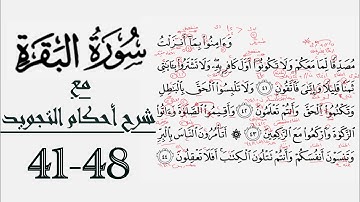 سورة البقرة
مع
شرح أحكام التجويد
41-48
وَءَامِنُوا۟ بِمَآ أَنزَلْتُ
مُصَدِّقًا لِّمَا مَعَكُمْ وَلَا تَكُونُوٓا۟ أَوَّلَ كَافِرٍۭ بِهِۦ ۖ وَلَا تَشْتَرُوا۟ بِـَٔايَـٰتِى
ثَمَنًا قَلِيلًا وَإِيَّـٰىَ فَٱتَّقُونِ ٤١ وَلَا تَلْبِسُوا۟ ٱلْحَقَّ بِٱلْبَـٰطِلِ
وَتَكْتُمُوا۟ ٱلْحَقَّ وَأَنتُمْ تَعْلَمُونَ ٤٢ وَأَقِيمُوا۟ ٱلصَّلَوٰةَ وَءَاتُوا۟
ٱلزَّكَوٰةَ وَٱرْكَعُوا۟ مَعَ ٱلرَّٰكِعِينَ ٤٣ ۞ أَتَأْمُرُونَ ٱلنَّاسَ بِٱلْبِرِّ
وَتَنسَوْنَ أَنفُسَكُمْ وَأَنتُمْ تَتْلُونَ ٱلْكِتَـٰبَ ۚ أَفَلَا تَعْقِلُونَ ٤٤